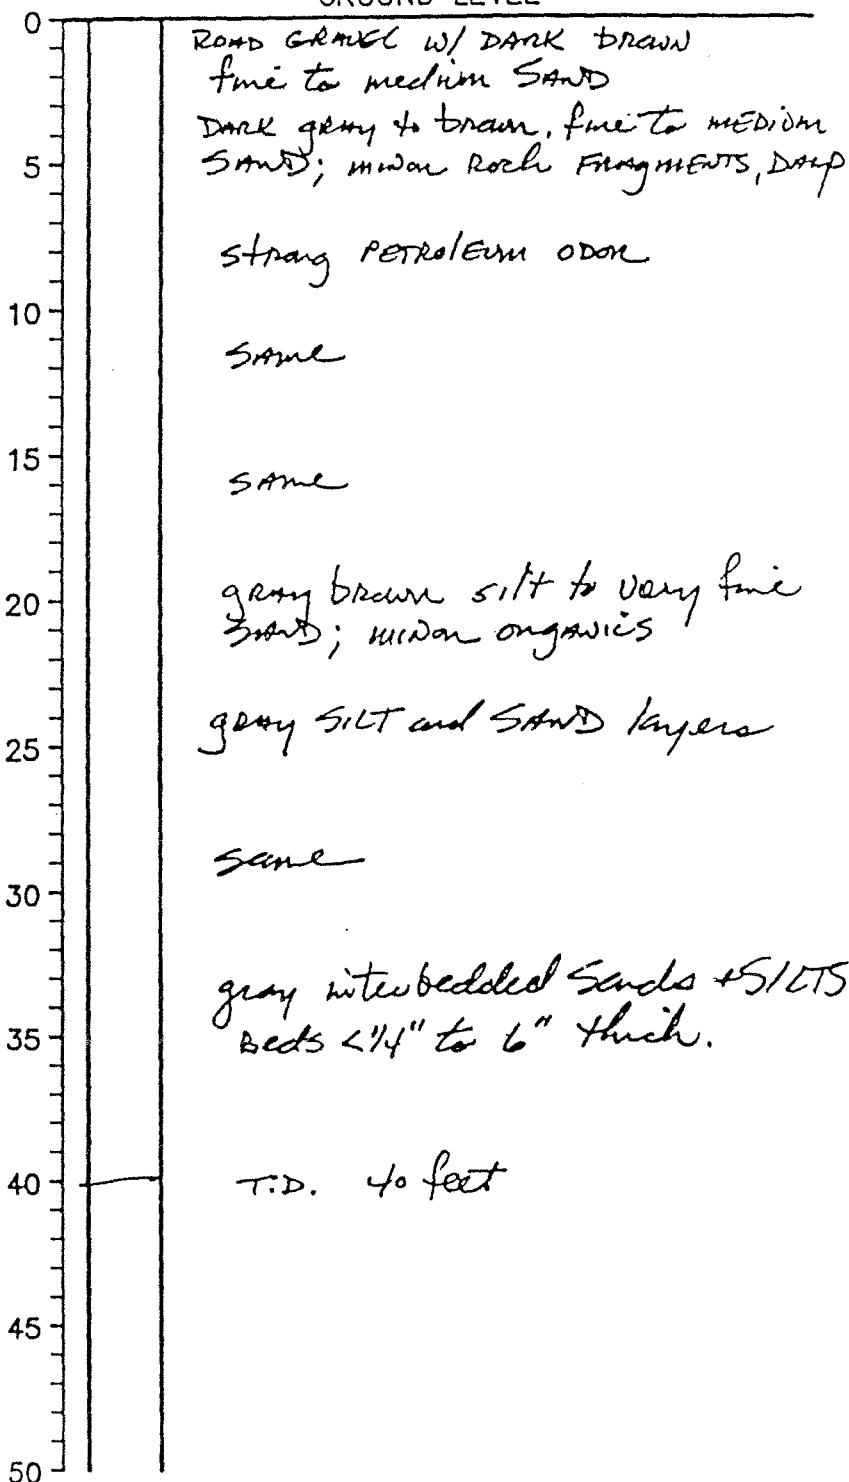 GROUND LEVEL
0
ROAD GRAVEL W/ DARK brown
fine to medium SAND
DARK gray to brown, fine to MEDIUM
5
SAND; minor Rock FRAGMENTS, DAMP
strong PETROLEUM ODOR
10
SAME
15
SAME
gray brown silt to very fine
20
SAND; minor organics
gray SILT and SAND layers
25
same
30
gray interbedded Sands + SILTS
35
Beds <1/4" to 6" thick.
40
T.D. 40 feet
45
50